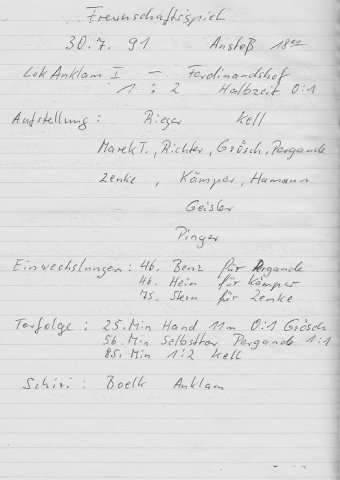 Freunschaftsspiel
30.7. 91 Anstoß 18⁰⁰
Lok Anklam I – Ferdinandshof
1 : 2 Halbzeit 0:1
Aufstellung : Rieger Kell
Marek T., Richter, Grösch, Pergande
Zenke , Kämper, Hamann
Geisler
Pinger
Einwechslungen : 46. Benz für Pergande
46. Hein für Kämper
75. Stern für Zenke
Torfolge : 25. Min Hand 11m 0:1 Grösch
56. Min Selbsttor Pergande 1:1
85. Min 1:2 Kell
Schiri : Boelk Anklam